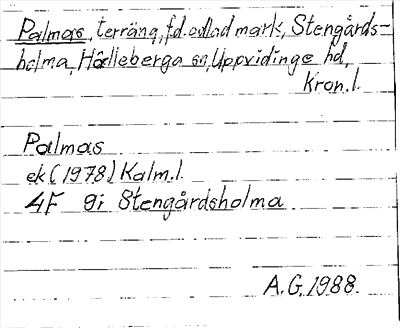 Palmas, terräng, f.d. odlad mark, Stengårds-
holma, Hälleberga sn, Uppvidinge hd,
Kron.l.
Palmas
ek (1978) Kalm.l.
4F 9i Stengårdsholma
A.G. 1988.